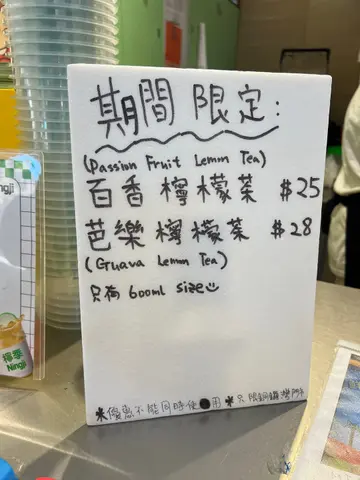 期間限定:
(Passion Fruit Lemon Tea)
百香檸檬茶 $25
芭樂檸檬茶 $28
(Guava Lemon Tea)
只有 600ml size
*優惠不能同時使用 *只限銅鑼灣門市
檸季
Ningji